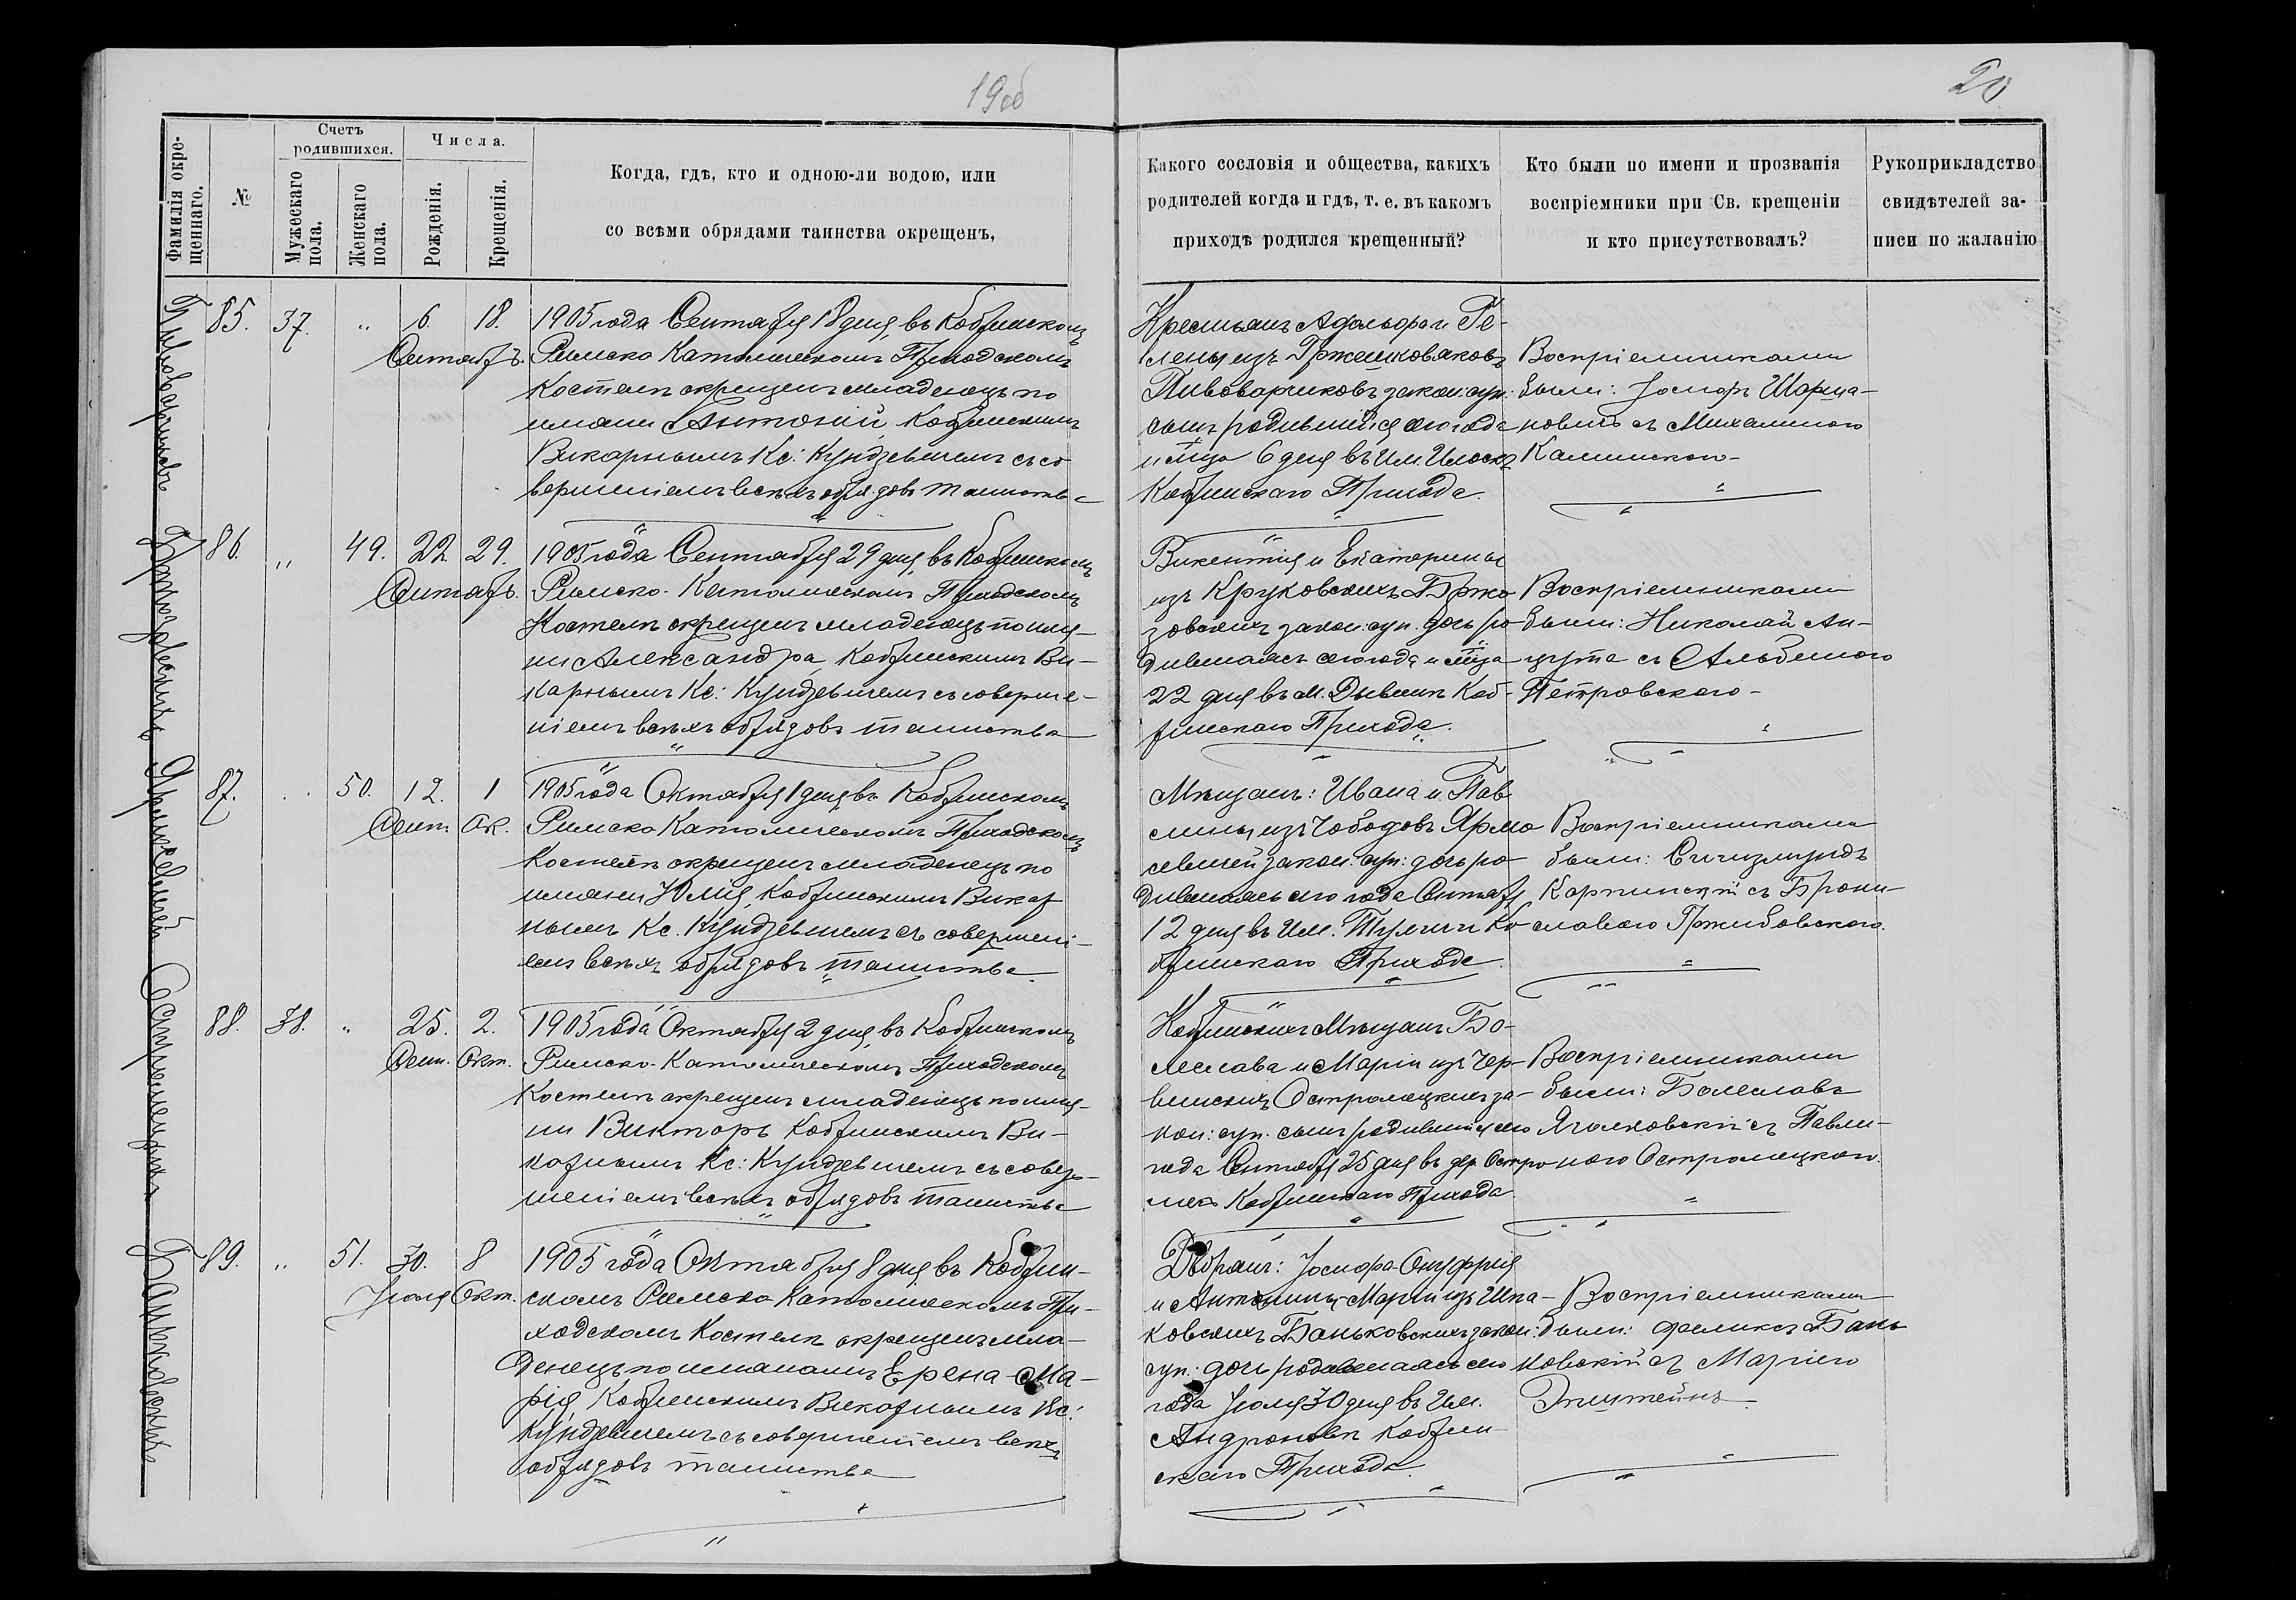 19об
20
Фамилія окре-
щеннаго.
№
Счетъ
родившихся.
Мужескаго
пола.
Женскаго
пола.
Числа.
Рожденія.
Крещенія.
Когда, гдѣ, кто и одною-ли водою, или
со всѣми обрядами таинства окрещенъ,
Какого сословія и общества, какихъ
родителей когда и гдѣ, т. е. въ какомъ
приходѣ родился крещенный?
Кто были по имени и прозванія
воспріемники при Св. крещеніи
и кто присутствовалъ?
Рукоприкладство
свидѣтелей за-
писи по жаланію
85. 37. " 6. 18.
Сентябрь.
1905 года Сентября 18 дня, въ Кобринскомъ
Римско Католическомъ Приходскомъ
Костелѣ окрещенъ младенецъ по
имени Антоній, Кобринскимъ
Викарнымъ Кс: Кундзевичемъ съ со
вершеніемъ всѣхъ обрядовъ таинства
Крестьянъ Адольфа и Ге-
лены изъ Гржешковяковъ
Пивоварчиковъ закон: суп:
сынъ родившійся сего года
и м-ца 6 дня въ Им. Илоскъ
Кобринскаго Прихода.
Воспріемниками
были: Іосифъ Шарпа-
новичъ съ Михалиною
Калинскою
86. " 49. 22. 29.
Сентябр.
1905 года Сентября 29 дня, въ Кобринскомъ
Римско-Католическомъ Приходскомъ
Костелѣ окрещенъ младенецъ по име-
ни Александра, Кобринскимъ Ви-
карнымъ Кс: Кундзевичемъ съ соверше-
ніемъ всѣхъ обрядовъ таинства
Викентія и Екатерины
изъ Круковскихъ Бржо
зовскихъ закон: суп. дочь ро
дившаясь сего года и м-ца
22 дня въ м. Дывинѣ Коб-
ринскаго Прихода.
Воспріемниками
были: Николай Ан-
цута съ Альбиною
Петровскою
87. " 50. 12. 1
Сент. Ок.
1905 года Октября 1 дня, въ Кобринскомъ
Римско Католическомъ Приходскомъ
Костелѣ окрещенъ младенецъ по
имени Юлія, Кобринскимъ Викар
нымъ Кс. Кундзевичемъ съ совершені-
емъ всѣхъ обрядовъ таинства
Мѣщанъ: Ивана и Пав
лины изъ Чободовъ Ярмо
севичей закон: суп: дочь ро
дившаясь сего года Сентябр
12 дня въ Им. Туличи Ко
бринскаго Прихода.
Воспріемниками
были: Сигизмундъ
Карпинскій съ Брони
славою Гржибовскою.
88. 38. " 25. 2.
Сент. Окт.
1905 года Октября 2 дня, въ Кобринскомъ
Римско-Католическомъ Приходскомъ
Костелѣ окрещенъ младенецъ по име-
ни Викторъ Кобринскимъ Ви-
карнымъ Кс: Кундзевичемъ съ совер-
шеніемъ всѣхъ обрядовъ таинства
Кобринскихъ Мѣщанъ Бо-
леслава и Маріи изъ Чер-
винскихъ Остромецкихъ за-
кон: суп. сынъ родившійся сего
года Сентября 25 дня въ дер. Остро
Кобринскаго Прихода
Воспріемниками
были: Болеславъ
Ягелковскій съ Павли-
ною Остромецкою.
89. " 51. 30. 8
Іюля Окт.
1905 года Октября 8 дня, въ Кобрин-
скомъ Римско Католическомъ При-
ходскомъ Костелѣ окрещенъ мла-
денецъ по именамъ Ерена-Ма-
рія, Кобринскимъ Викарнымъ Кс:
Кундзевичемъ съ совершеніемъ всѣхъ
обрядовъ таинства
Дворянъ: Іосифа-Онуфрія
и Антонины-Маріи изъ Шпа-
ковскихъ Баньковскихъ закон:
суп: дочь родившаясь сего
года Іюля 30 дня въ Им.
Андроновѣ Кобрин-
скаго Прихода.
Воспріемниками
были: Феликсъ Бань
ковскій съ Маріею
Эпштейнъ
Пивоварчикъ
Бржозовскихъ
Ярмосевичей
Остромецкихъ
Баньковскихъ